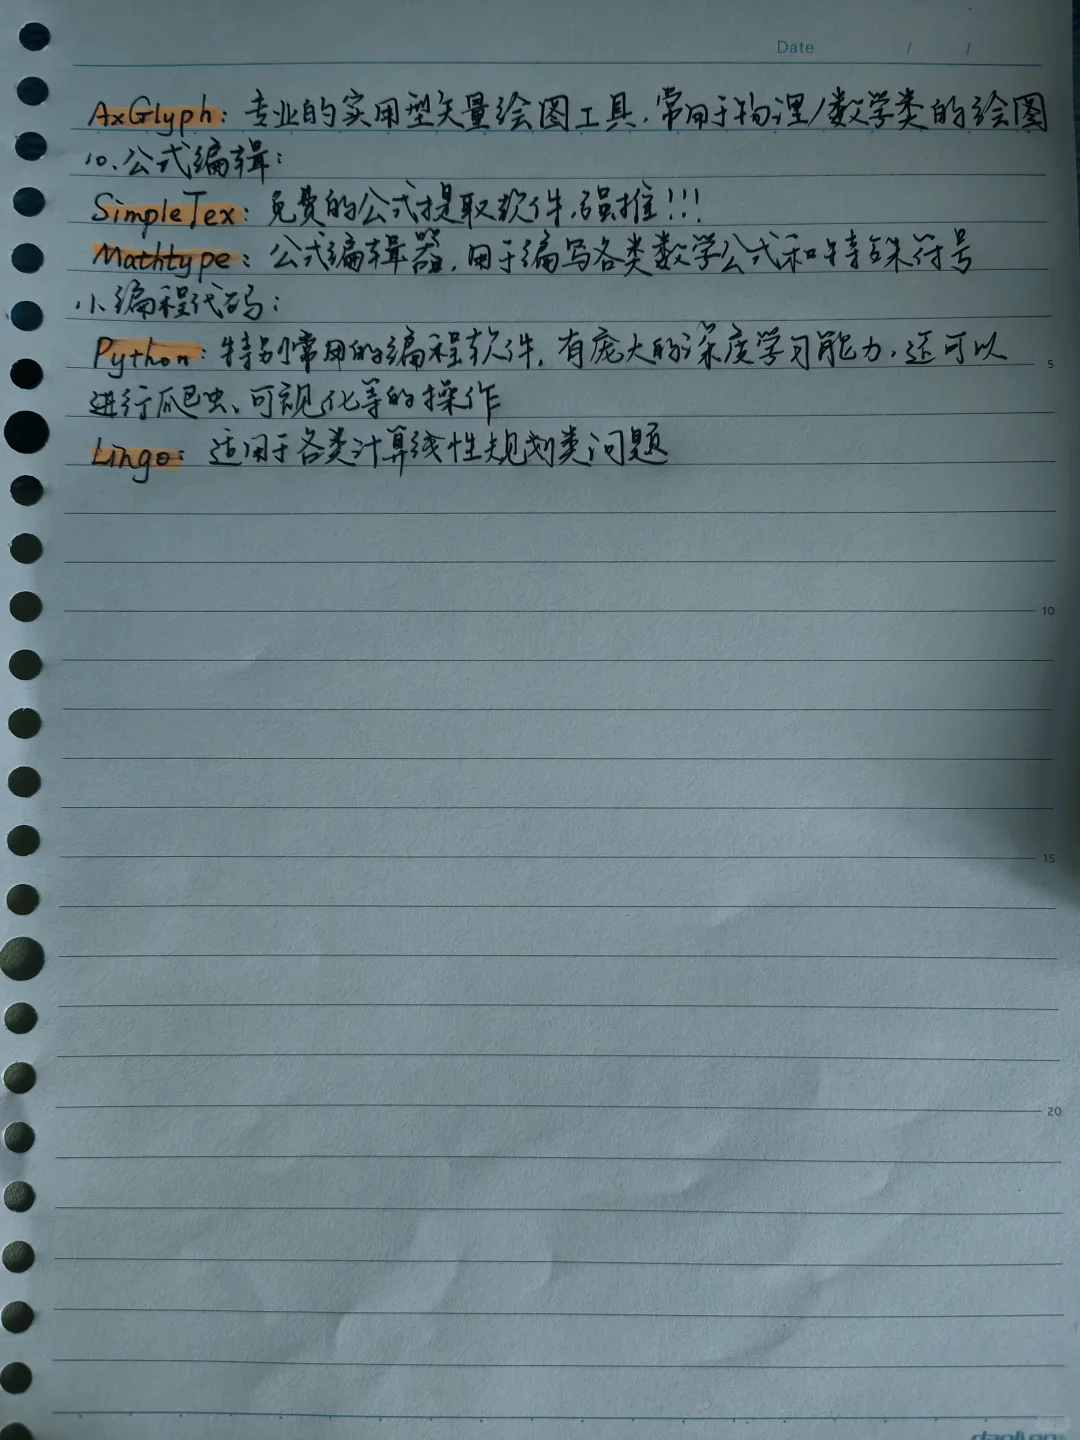 Date / /
AxGlyph：专业的实用型矢量绘图工具，常用于物理/数学类的绘图
10.公式编辑：
SimpleTex：免费的公式提取软件，强推!!!
Mathtype：公式编辑器，用于编写各类数学公式和特殊符号
11.编程代码：
Python：特别常用的编程软件，有庞大的深度学习能力，还可以
5
进行爬虫、可视化等的操作
Lingo：适用于各类计算线性规划类问题
10
15
20